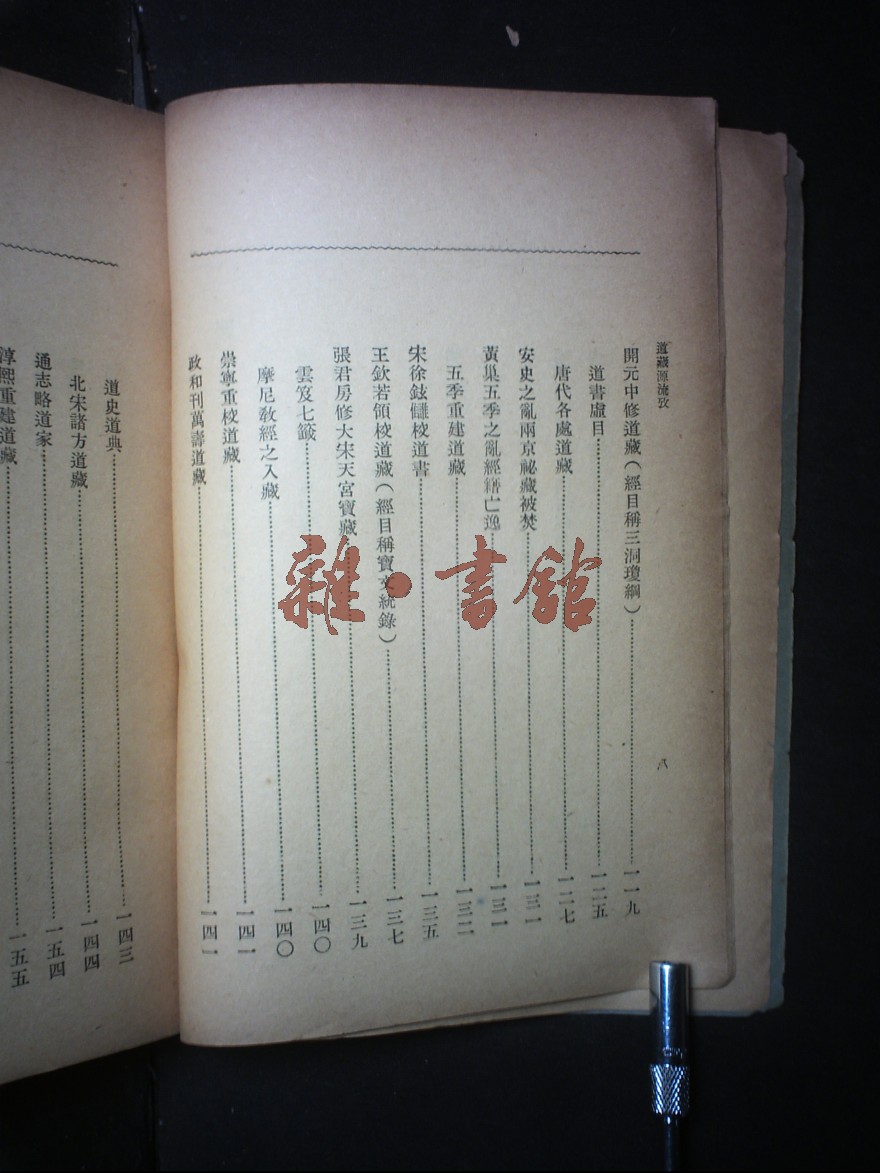 道藏源流攷
八
開元中修道藏（經目稱三洞瓊綱）……一一九
道書虛目……一二五
唐代各處道藏……一二七
安史之亂兩京祕藏被焚……一三一
黃巢五季之亂經籍亡逸……一三一
五季重建道藏……一三二
宋徐鉉讎校道書……一三五
王欽若領校道藏（經目稱寶文統錄）……一三七
張君房修大宋天宮寶藏……一三九
雲笈七籤……一四〇
摩尼敎經之入藏……一四〇
崇寧重校道藏……一四一
政和刊萬壽道藏……一四一
道史道典……一四三
北宋諸方道藏……一四四
通志略道家……一五四
淳熙重建道藏……一五五
雜·書館